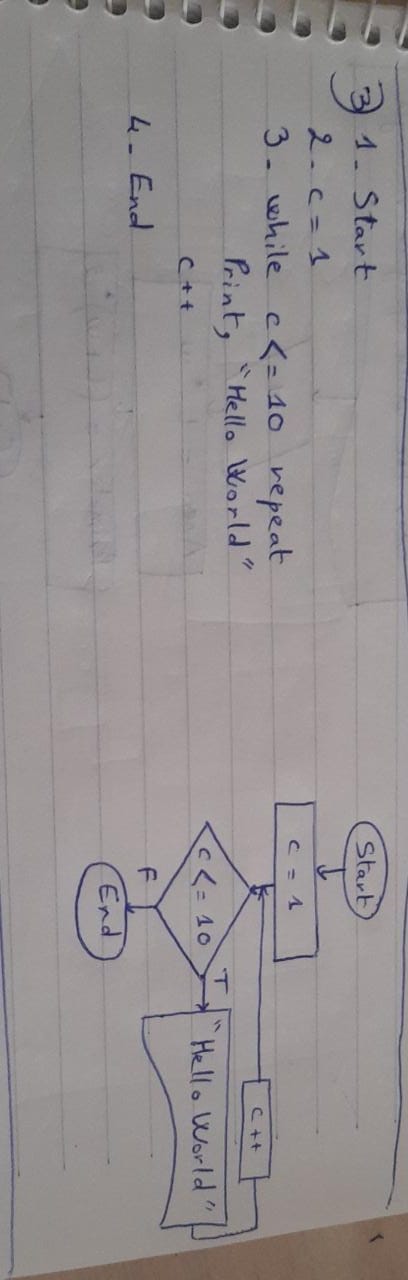 3) 1- Start
2- c = 1
3- while c <= 10 repeat
Print, "Hello World"
c++
4- End
Start
c = 1
c <= 10
T
"Hello World"
c++
F
End